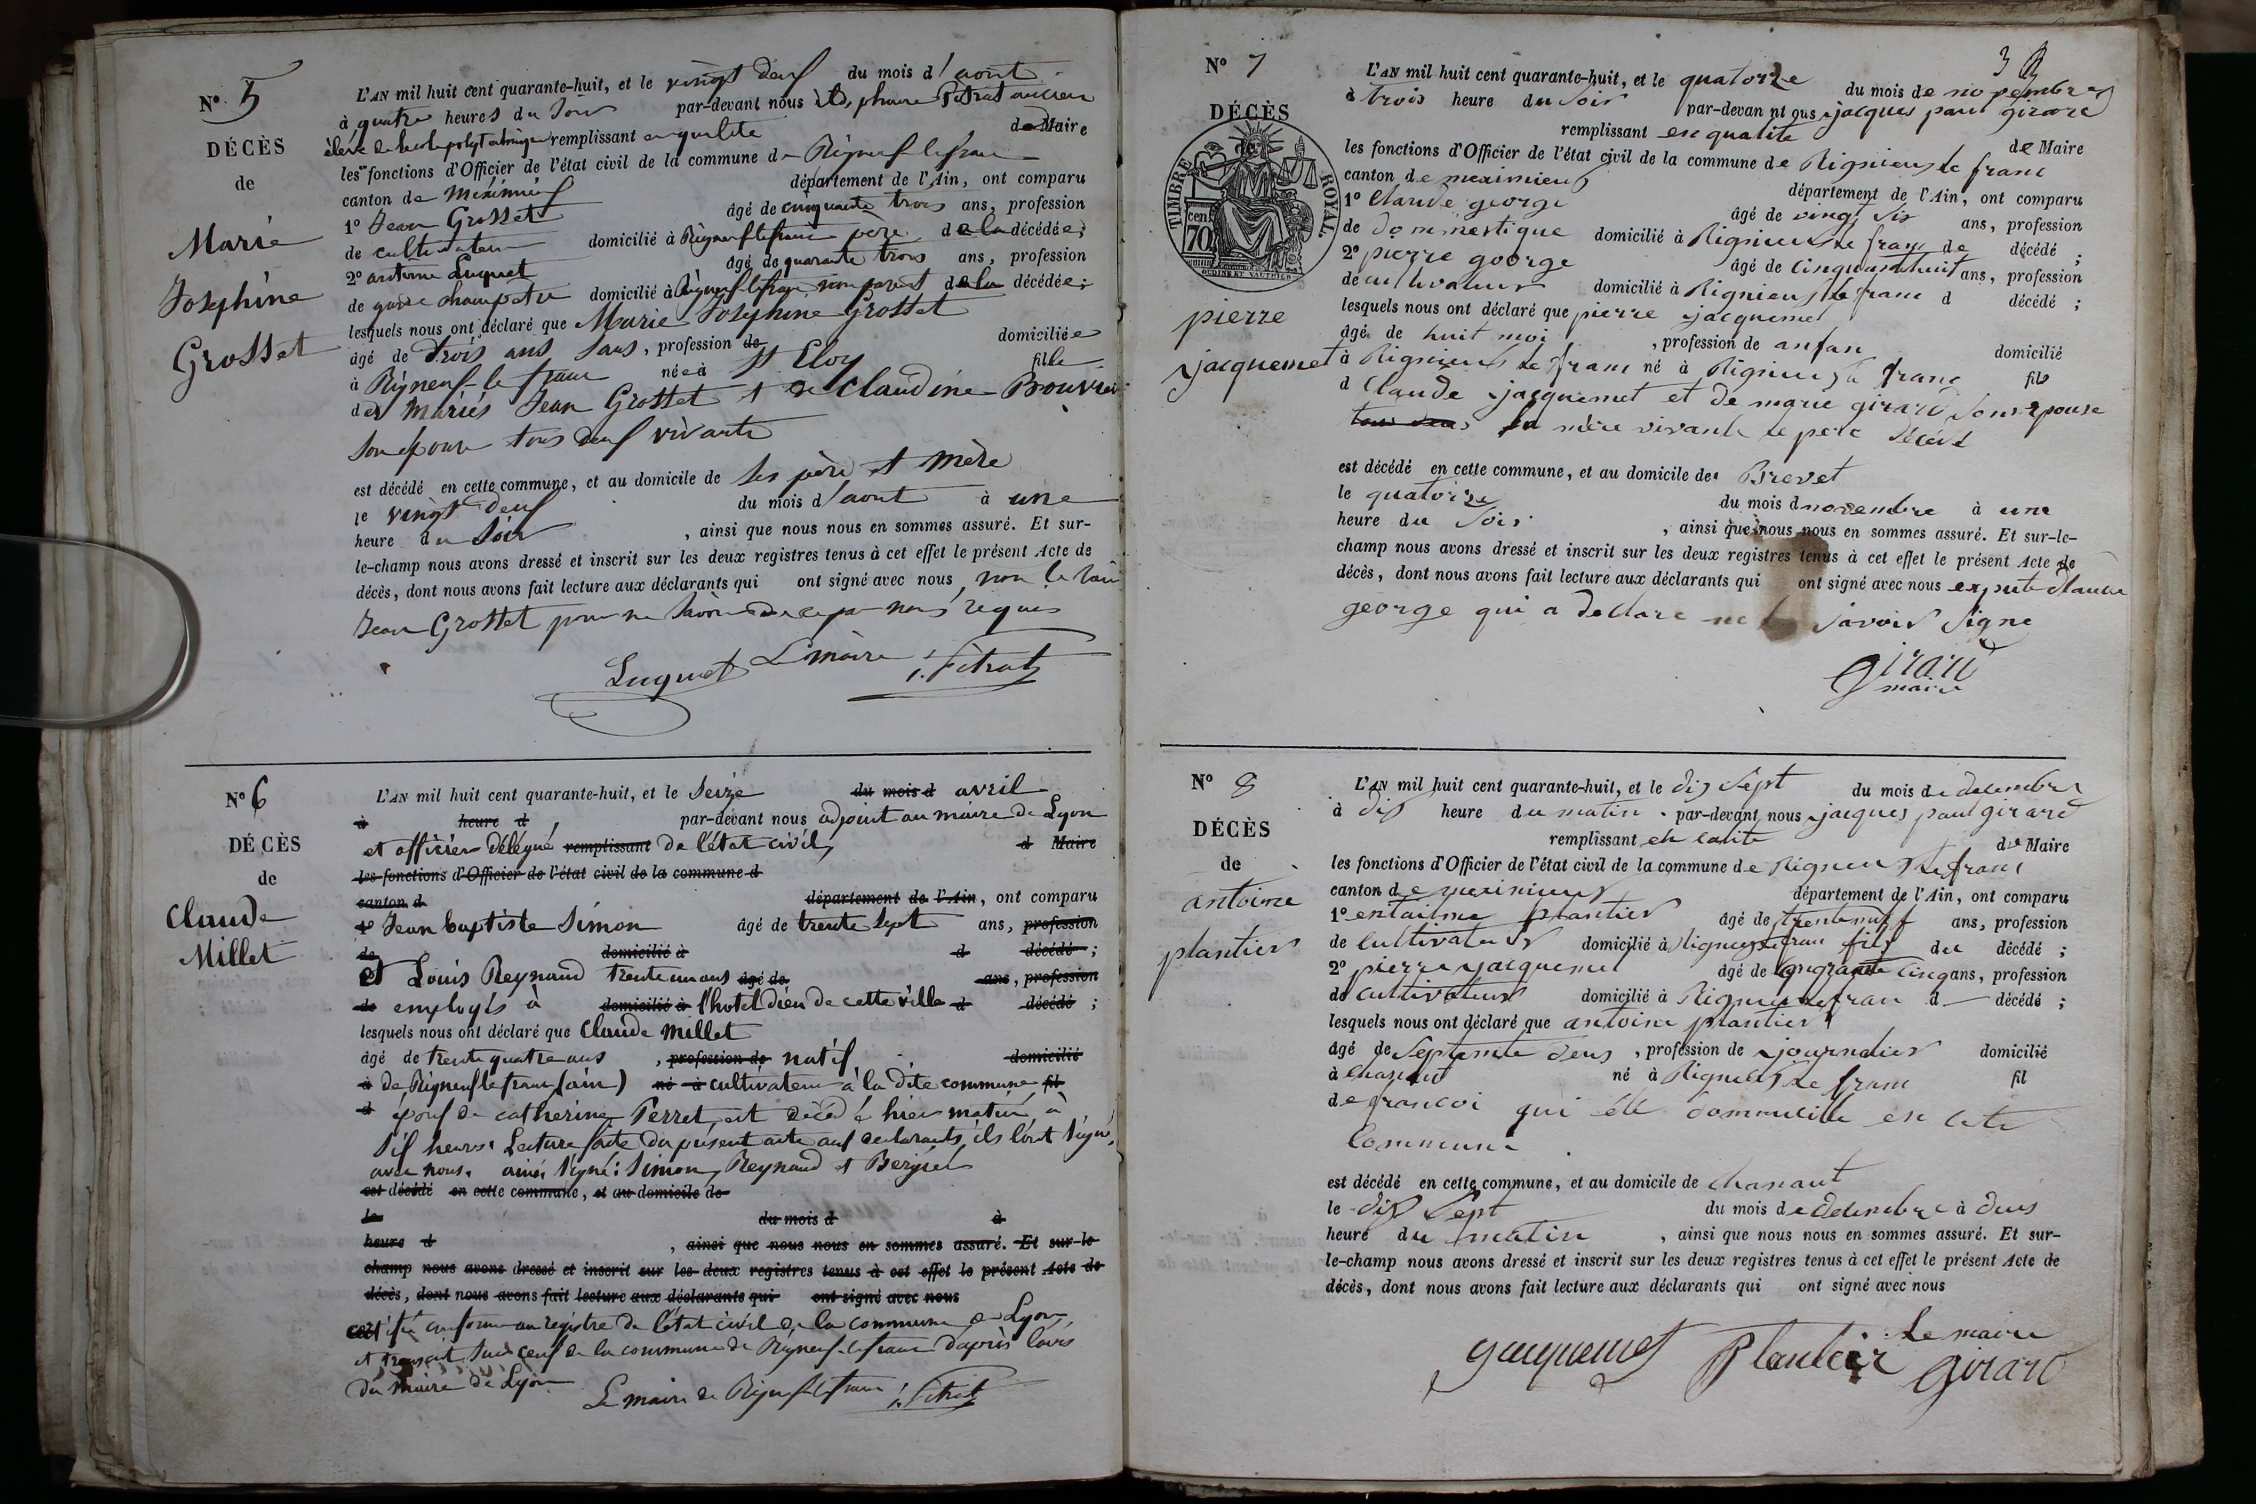 N° 5
DÉCÈS
de
Marie
Josephine
Grosset
L'AN mil huit cent quarante-huit, et le vingt deux du mois d'aout
à quatre heures du soir par-devant nous Pitrat ancien
élève de l'ecole polytechnique remplissant en qualité de Maire
les fonctions d'Officier de l'état civil de la commune de Rigneux le franc
canton de Meximieux département de l'Ain, ont comparu
1° Jean Grosset âgé de cinquante trois ans, profession
de cultivateur domicilié à Rigneux le franc père de la décédée;
2° antoine Luquet âgé de quarante trois ans, profession
de garde champetre domicilié à Rigneux le franc non parent de la décédée;
lesquels nous ont déclaré que Marie Josephine Grosset
âgé de trois ans sans, profession de domiciliée
à Rigneux-le franc née à St Eloy fille
des mariés Jean Grosset et de Claudine Bouvier
son epouse tous deux vivants
est décédé en cette commune, et au domicile de ses père et mère
le vingt deux du mois d'aout à une
heure du soir, ainsi que nous nous en sommes assuré. Et sur-
le-champ nous avons dressé et inscrit sur les deux registres tenus à cet effet le présent Acte de
décès, dont nous avons fait lecture aux déclarants qui ont signé avec nous, non le
Jean Grosset pour ne savoir de ce par nous requis
Luquet Le maire Pitrat
N° 6
DÉCÈS
de
Claude
Millet
L'AN mil huit cent quarante-huit, et le seize du mois d avril
à heure d par-devant nous adjoint au maire de Lyon
et officier délégué remplissant de l'état civil, d Maire
les fonctions d'Officier de l'état civil de la commune d
canton d département de l'Ain, ont comparu
1° Jean baptiste Simon âgé de trente sept ans, profession
de domicilié à d décédé ;
et Louis Reynaud trente un ans âgé de ans, profession
de employés à domicilié à l'hotel dieu de cette ville d décédé ;
lesquels nous ont déclaré que Claude Millet
âgé de trente quatre ans, profession de natif domicilié
à de Rigneux le franc (ain) né à cultivateur à la dite commune fil
d époux de catherine Perret est décédé hier matin à
six heures. Lecture faite du present acte aux declarants, ils l'ont signé
avec nous. ainsi signé: Simon, Reynaud et Bergier
est décédé en cette commune, et au domicile de
le du mois d à
heure d, ainsi que nous nous en sommes assuré. Et sur-le-
champ nous avons dressé et inscrit sur les deux registres tenus à cet effet le présent Acte de
décès, dont nous avons fait lecture aux déclarants qui ont signé avec nous
certifié conforme au registre de l'état civil de la commune de Lyon
et transcrit sur ceux de la commune de Rigneux le franc d'après l'avis
du maire de Lyon Le maire de Rigneux le franc Pitrat
N° 7
DÉCÈS
de
TIMBRE ROYAL
cen 70
pierre
jacquemet
L'AN mil huit cent quarante-huit, et le quatorze du mois de novembre
à trois heure du soir par-devant nous jacques paul girard
remplissant en qualite de Maire
les fonctions d'Officier de l'état civil de la commune de Rignieux le franc
canton de meximieux département de l'Ain, ont comparu
1° Claude george âgé de vingt six ans, profession
de dommestique domicilié à Rignieux le franc de décédé ;
2° pierre george âgé de cinquante huit ans, profession
de cultivateur domicilié à Rignieux le franc d décédé ;
lesquels nous ont déclaré que pierre jacquemet
âgé de huit moi, profession de anfan domicilié
à Rignieux le franc né à Rignieux le franc fils
d Claude jacquemet et de marie girard son epouse
tous deux la mère vivante le pere décédé
est décédé en cette commune, et au domicile de Brevet
le quatorze du mois d novembre à une
heure du soir, ainsi que nous nous en sommes assuré. Et sur-le-
champ nous avons dressé et inscrit sur les deux registres tenus à cet effet le présent Acte de
décès, dont nous avons fait lecture aux déclarants qui ont signé avec nous Claude
george qui a dellare ne savoir signe
girard
maire
N° 8
DÉCÈS
de
antoine
plantier
L'AN mil huit cent quarante-huit, et le dix sept du mois de decembre
à dix heure du matin par-devant nous jacques paul girard
remplissant en calite de Maire
les fonctions d'Officier de l'état civil de la commune de Rignieux le franc
canton de meximieux département de l'Ain, ont comparu
1° plantier âgé de trente neuf ans, profession
de cultivateur domicilié à Rignieux le franc fils du décédé ;
2° pierre jacquemet âgé de cinq ans, profession
de cultivateur domicilié à Rignieux le franc d décédé ;
lesquels nous ont déclaré que antoine plantier
âgé de septante deux, profession de journalier domicilié
à chanaut né à Rignieux le franc fil
de francoi qui été dommicilie en cete
Commune
est décédé en cette commune, et au domicile de chanaut
le dix sept du mois de decembre à deux
heure du matin, ainsi que nous nous en sommes assuré. Et sur-
le-champ nous avons dressé et inscrit sur les deux registres tenus à cet effet le présent Acte de
décès, dont nous avons fait lecture aux déclarants qui ont signé avec nous
jacquemet Plantier Le maire
girard